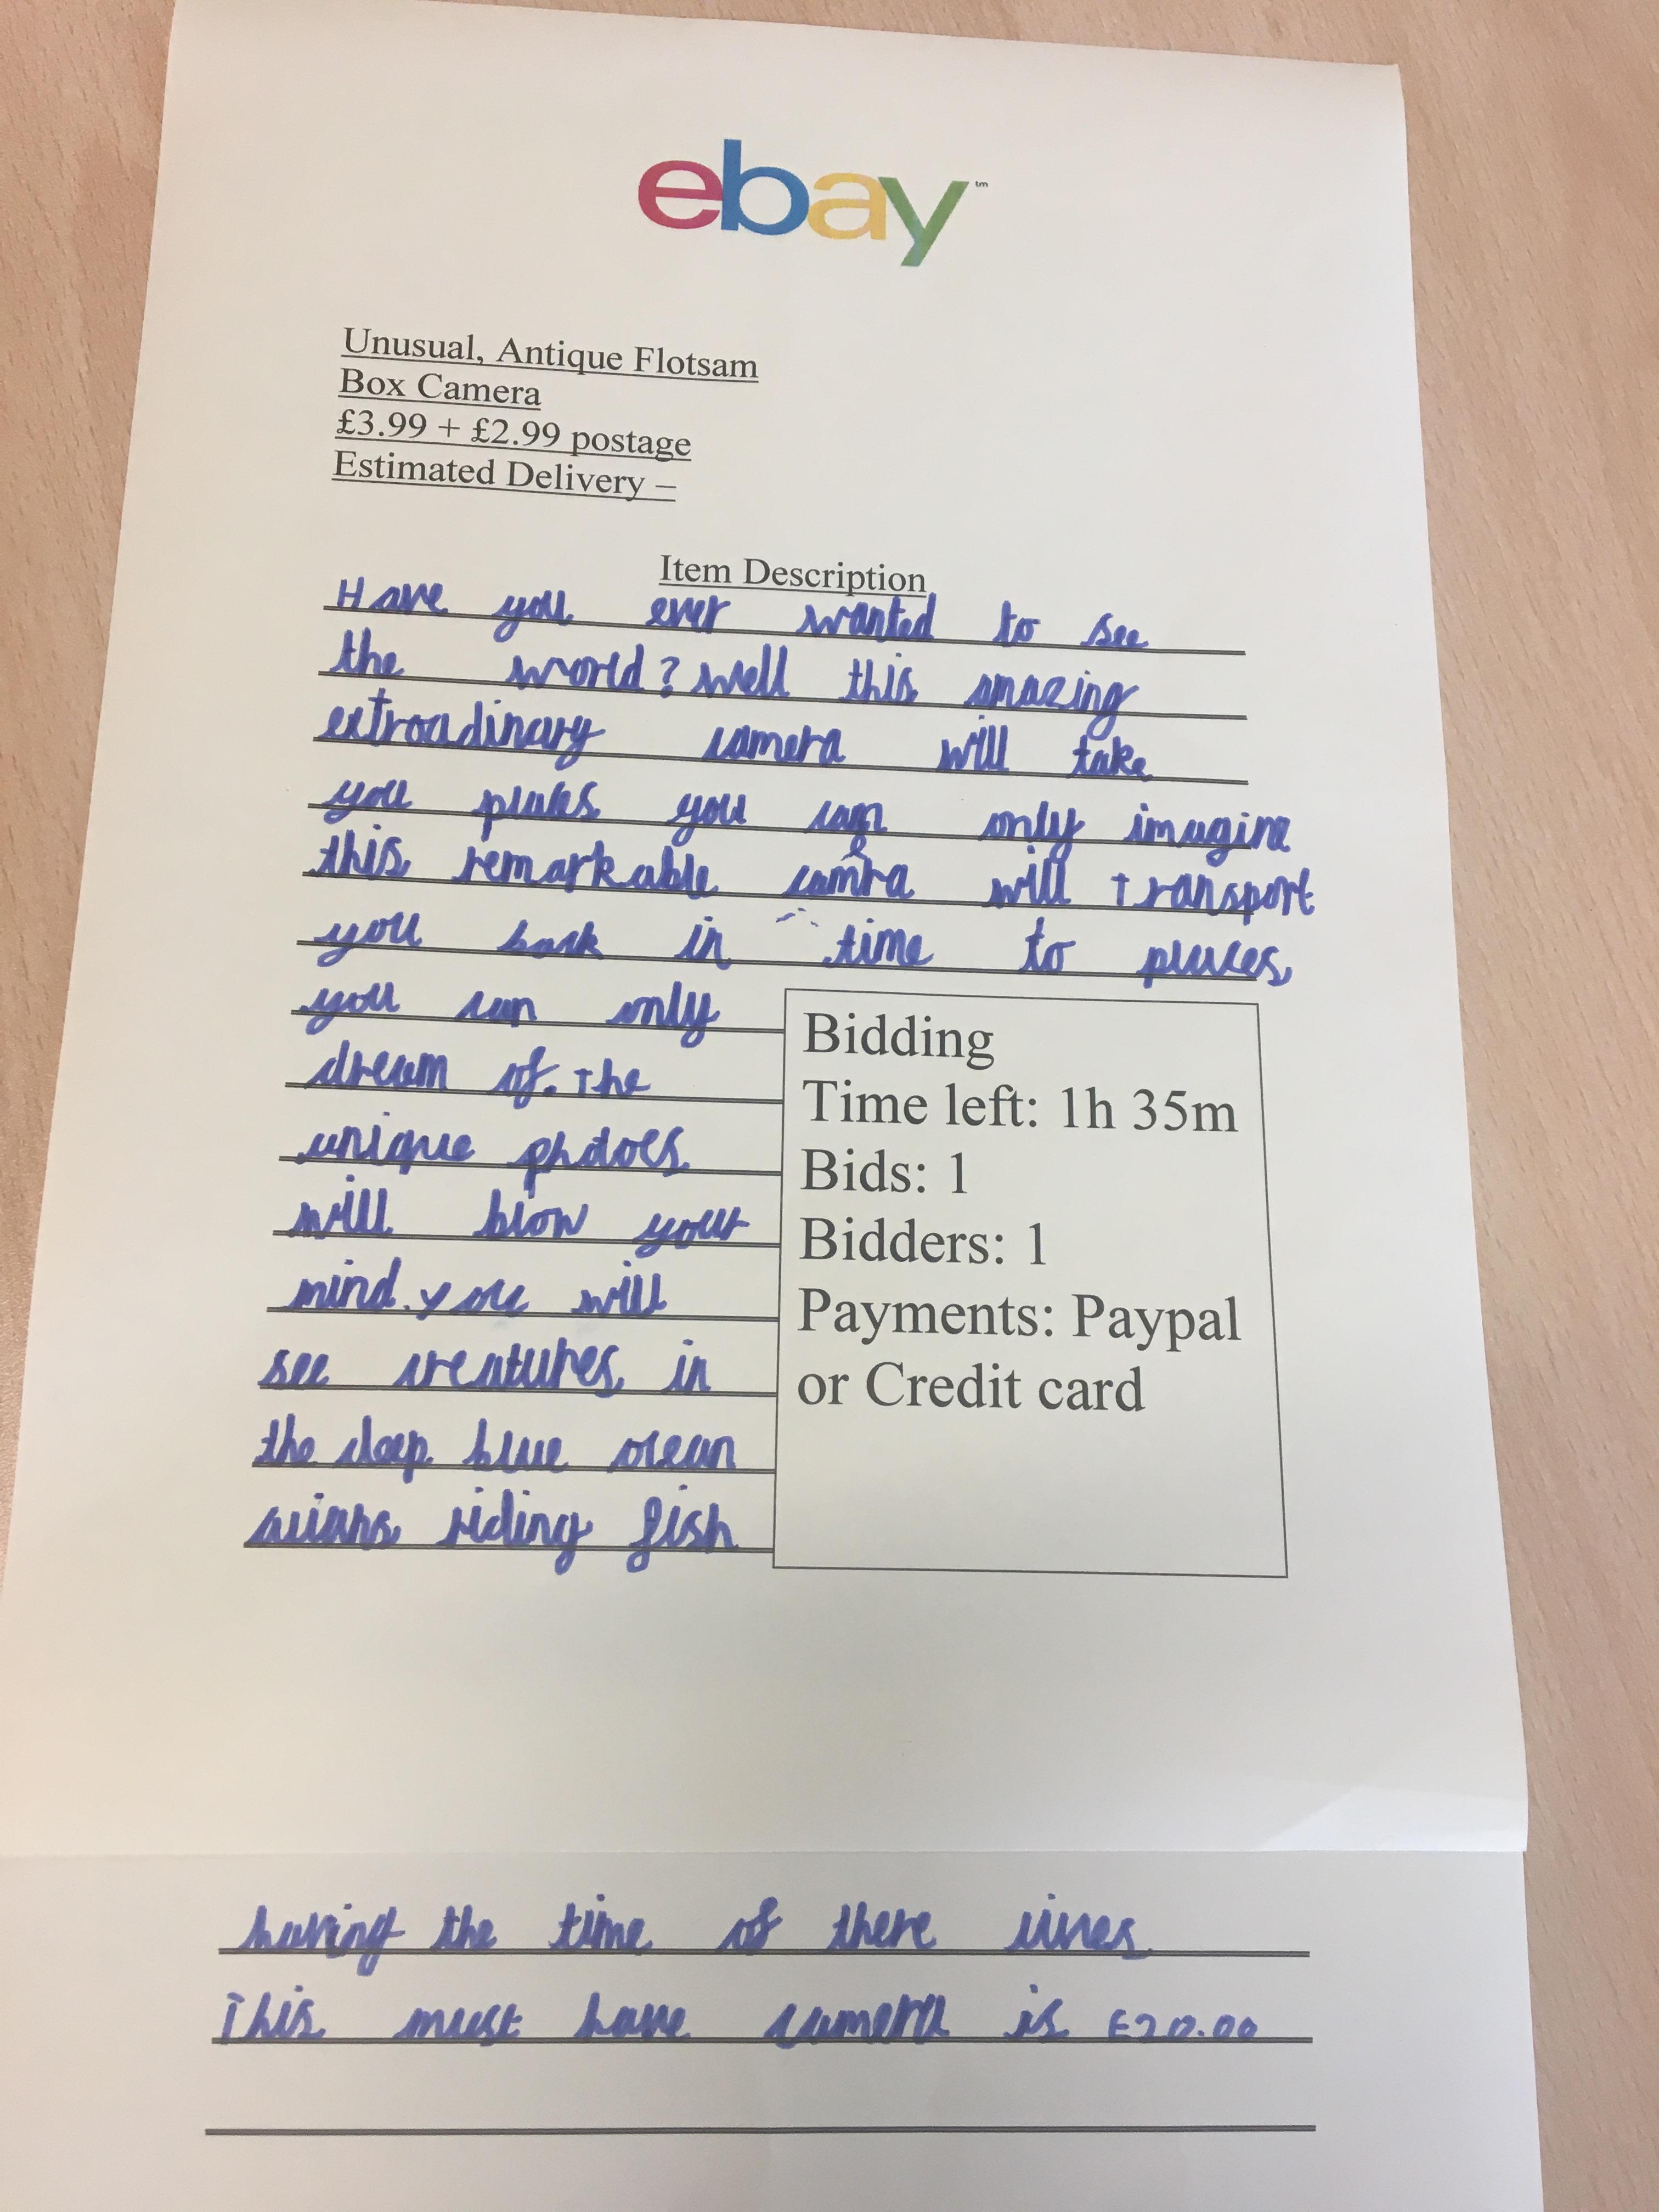 ebay™
Unusual, Antique Flotsam
Box Camera
£3.99 + £2.99 postage
Estimated Delivery –
Item Description
Have you ever wanted to see
the world? well this amazing
extroadinary camera will take
you places you can only imagine
this remarkable camra will transport
you back in time to places
you can only
dream of. The
unique photoes
will blow your
mind. you will
see creatures in
the deep blue ocean
riding fish
having the time of there lives
This must have camera is £20.00
Bidding
Time left: 1h 35m
Bids: 1
Bidders: 1
Payments: Paypal
or Credit card